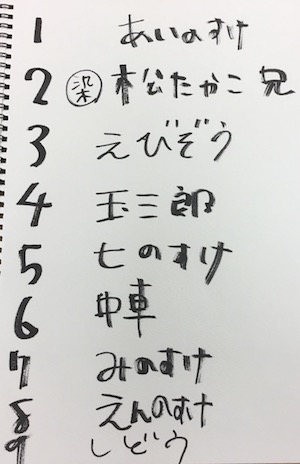 1 あいのすけ
2 染 松たかこ 兄
3 えびぞう
4 玉三郎
5 七のすけ
6 中車
7 みのすけ
8 えんのすけ
9 しどう